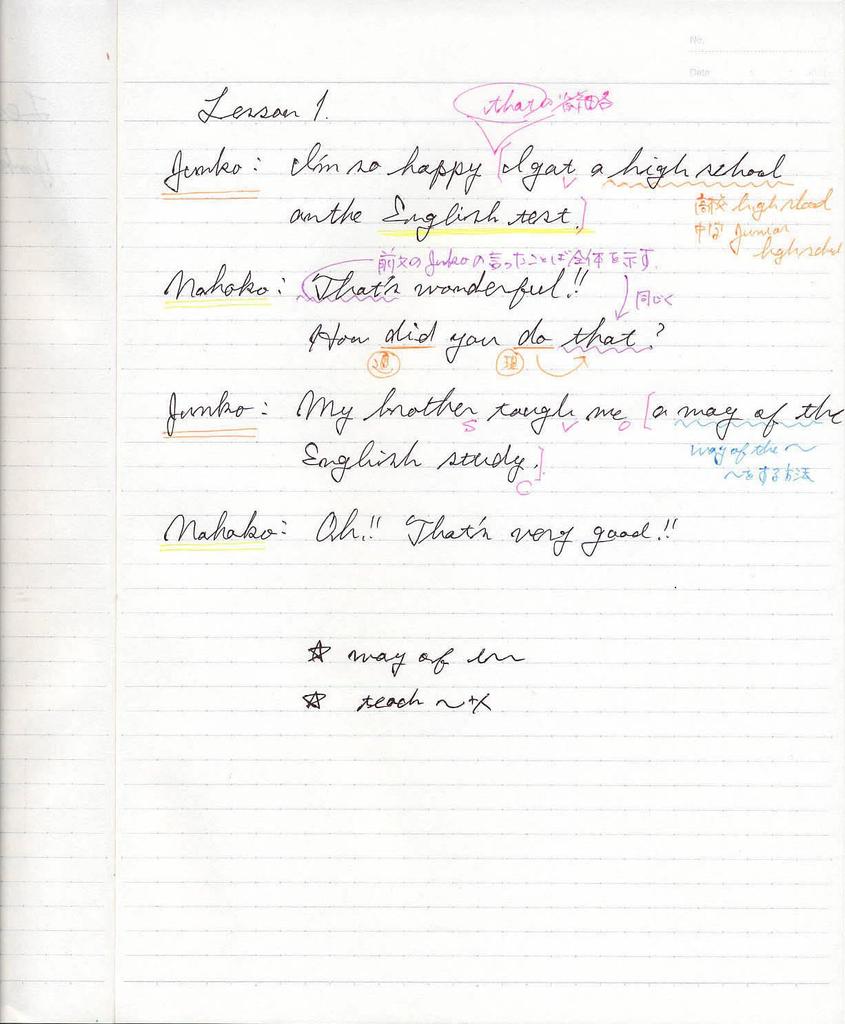 No.
Date
Lesson 1.
thatの省略
Junko: I'm so happy [I gat a high school
V
on the English test.]
高校 high school
中学 junior
high school
前文のJunkoの言ったことば全体を示す.
Nahoko: That's wonderful!!
同じく
How did you do that?
過 現
Junko: My brother tough me [a way of the
S V O
English study.]
C
way of the ～
～をする方法
Nahoko: Oh!! That's very good!!
☆ way of
☆ teach ～+X